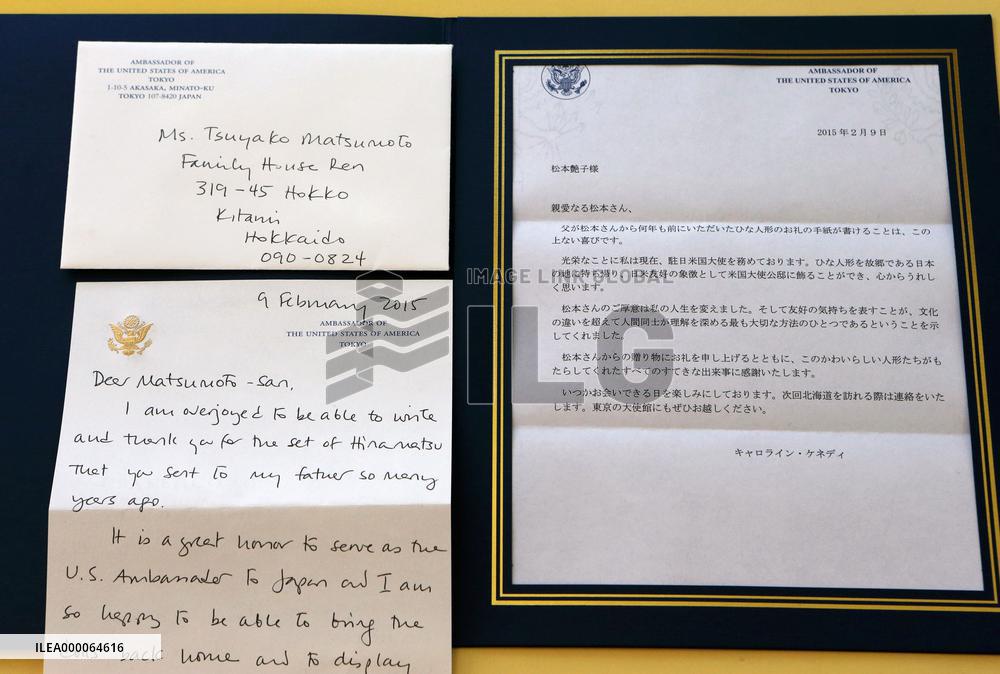 AMBASSADOR OF
THE UNITED STATES OF AMERICA
TOKYO
1-10-5 AKASAKA, MINATO-KU
TOKYO 107-8420 JAPAN
Ms. Tsuyako Matsumoto
Family House Ren
319-45 Hokko
Kitami
Hokkaido
090-0824
9 February 2015
AMBASSADOR OF
THE UNITED STATES OF AMERICA
TOKYO
Dear Matsumoto-san,
I am overjoyed to be able to write
and thank you for the set of Hinamatsu
that you sent to my father so many
years ago.
It is a great honor to serve as the
U.S. Ambassador to Japan and I am
so happy to be able to bring the
back home and to display
AMBASSADOR OF
THE UNITED STATES OF AMERICA
TOKYO
2015年2月9日
松本艶子様
親愛なる松本さん、
父が松本さんから何年も前にいただいたひな人形のお礼の手紙が書けることは、この
上ない喜びです。
光栄なことに私は現在、駐日米国大使を務めております。ひな人形を故郷である日本
の地に持ち帰り、日米友好の象徴として米国大使公邸に飾ることができ、心からうれし
く思います。
松本さんのご厚意は私の人生を変えました。そして友好の気持ちを表すことが、文化
の違いを超えて人間同士が理解を深める最も大切な方法のひとつであるということを示
してくれました。
松本さんからの贈り物にお礼を申し上げるとともに、このかわいらしい人形たちがも
たらしてくれたすべてのすてきな出来事に感謝いたします。
いつかお会いできる日を楽しみにしております。次回北海道を訪れる際は連絡をいた
します。東京の大使館にもぜひお越しください。
キャロライン・ケネディ
IMAGE LINK GLOBAL
ILG
ILEA000064616